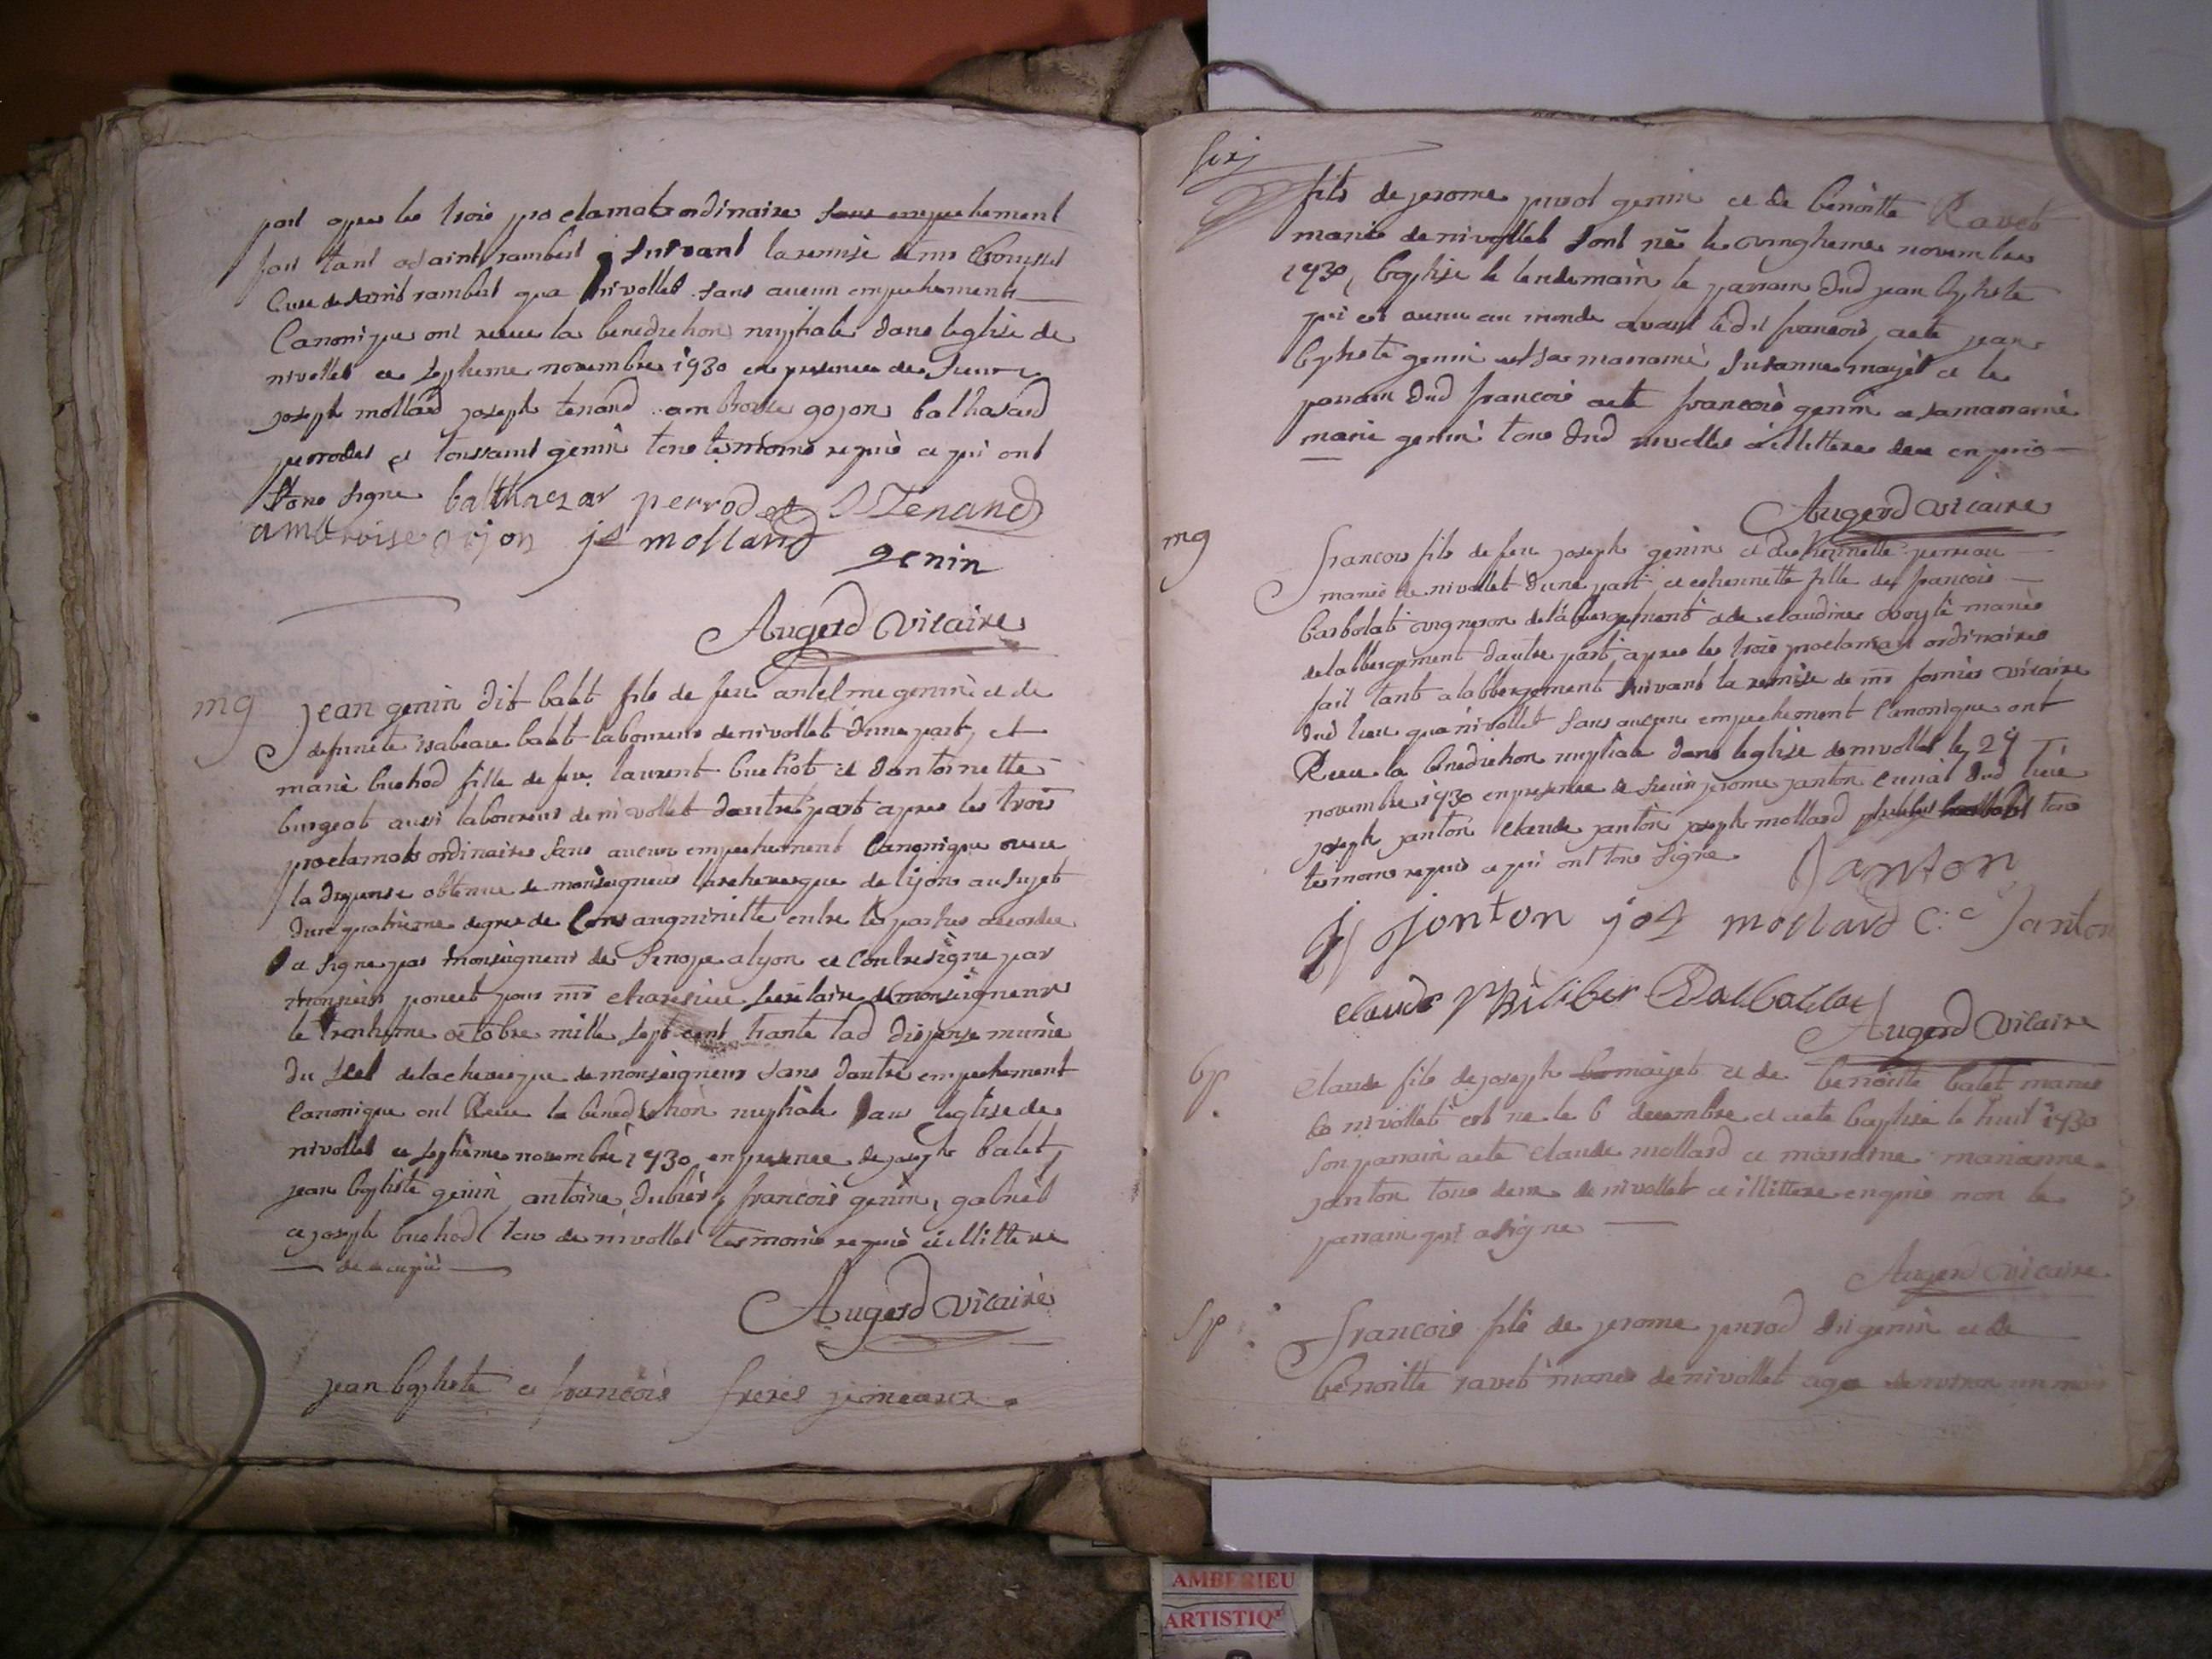 part apres les trois proclamats ordinaires sans empechement
fait tant a saint rambert suivant la remise de mr
Cure de saint rambert qua nivollet sans aucun empechement
Canonique ont receu la benediction nuptiale dans leglise de
nivollet ce septieme novembre 1730 en presence de sieur
joseph mollard joseph tenand ambroise gojon balthasard
perrodet et toussaint genin tous temoins requis ce qui ont
tous signe balthazar perrodet J Tenand
ambroise gojon js mollard
genin
Augerd vicaire
mg jean genin dit balet fils de feu antelme genin et de
defunte isabeau balet laboureur de nivollet dune part, et
marie buchod fille de feu laurent buchot et dantoinette
burgeot aussi laboureur de nivollet dautre part apres les trois
proclamats ordinaires sans aucun empechement Canonique
la dispense obtenue de monseigneur larcheveque de lyon au sujet
du quatrieme degre de Consanguinitte entre les parties accordee
et signe par monseigneur de Sinope a lyon et Contresigne par
monsieur poncet pour mr secretaire de monseigneur
le trentieme octobre mille sept cent trante lad dispense munie
du scel de monseigneur sans dautre empechement
Canonique ont Receu la benediction nuptiale dans leglise de
nivollet ce septieme novembre 1730 en presence de joseph balet,
jean baptiste genin antoine francois genin, gabriel
et joseph buchod tous de nivollet temoins requis et illittere
de ce enquis
Augerd vicaire
jean baptiste et francois freres jemeaux
fils de jerome perrod genin et de benoitte Ravet
maries de nivollet sont né le vingtieme novembre
1730, baptise le lendemain le parrain dud jean baptiste
qui est venu au monde avant ledit francois, a ete jean
baptiste genin et sa marraine Susanne mayet et le
parrain dud francois a ete francois genin et sa marraine
marie genin tous dud nivollet et illitteres de ce enquis
Augerd vicaire
mg francois fils de feu joseph genin et de
maries de nivollet dune part et ethiennette fille de francois
barbolat vigneron de labergement et de claudine maries
de labbergement dautre part, apres les trois proclamats ordinaires
fait tant a labbergement suivant la remise de mr vicaire
dud lieu qua nivollet sans aucun empechement Canonique ont
Receu la benediction nuptiale dans leglise de nivollet le 29
novembre 1730 en presence de sieur jerome janton dud lieu
joseph janton claude janton joseph mollard tous
temoins requis ce qui ont tous signe
Janton
Jj Jonton jos mollard C: C Janton
claude philiber Balbollat
Augerd vicaire
bp. Claude fils de joseph mayet et de benoitte balet maries
de nivollet est ne le 6 decembre et a ete baptise le huit 1730
son parrain a ete Claude mollard et marraine marianne
janton tous deux de nivollet et illittere enquis non le
parrain qui a signe
Augerd vicaire
Sp. francois fils de jerome perrod dit genin et de
benoitte ravet maries de nivollet age denviron un mois
AMBERIEU
ARTISTIQ